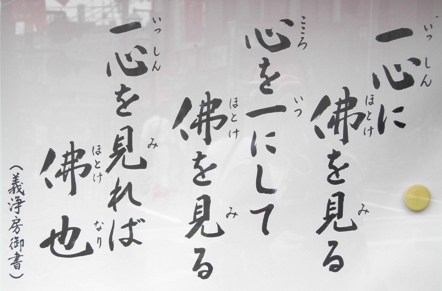 一心に
佛を見る
心を一にして
佛を見る
一心を見れば
佛也
(義浄房御書)
いっしん
ほとけ
み
こころ
いつ
ほとけ
み
いっしん
み
ほとけ
なり